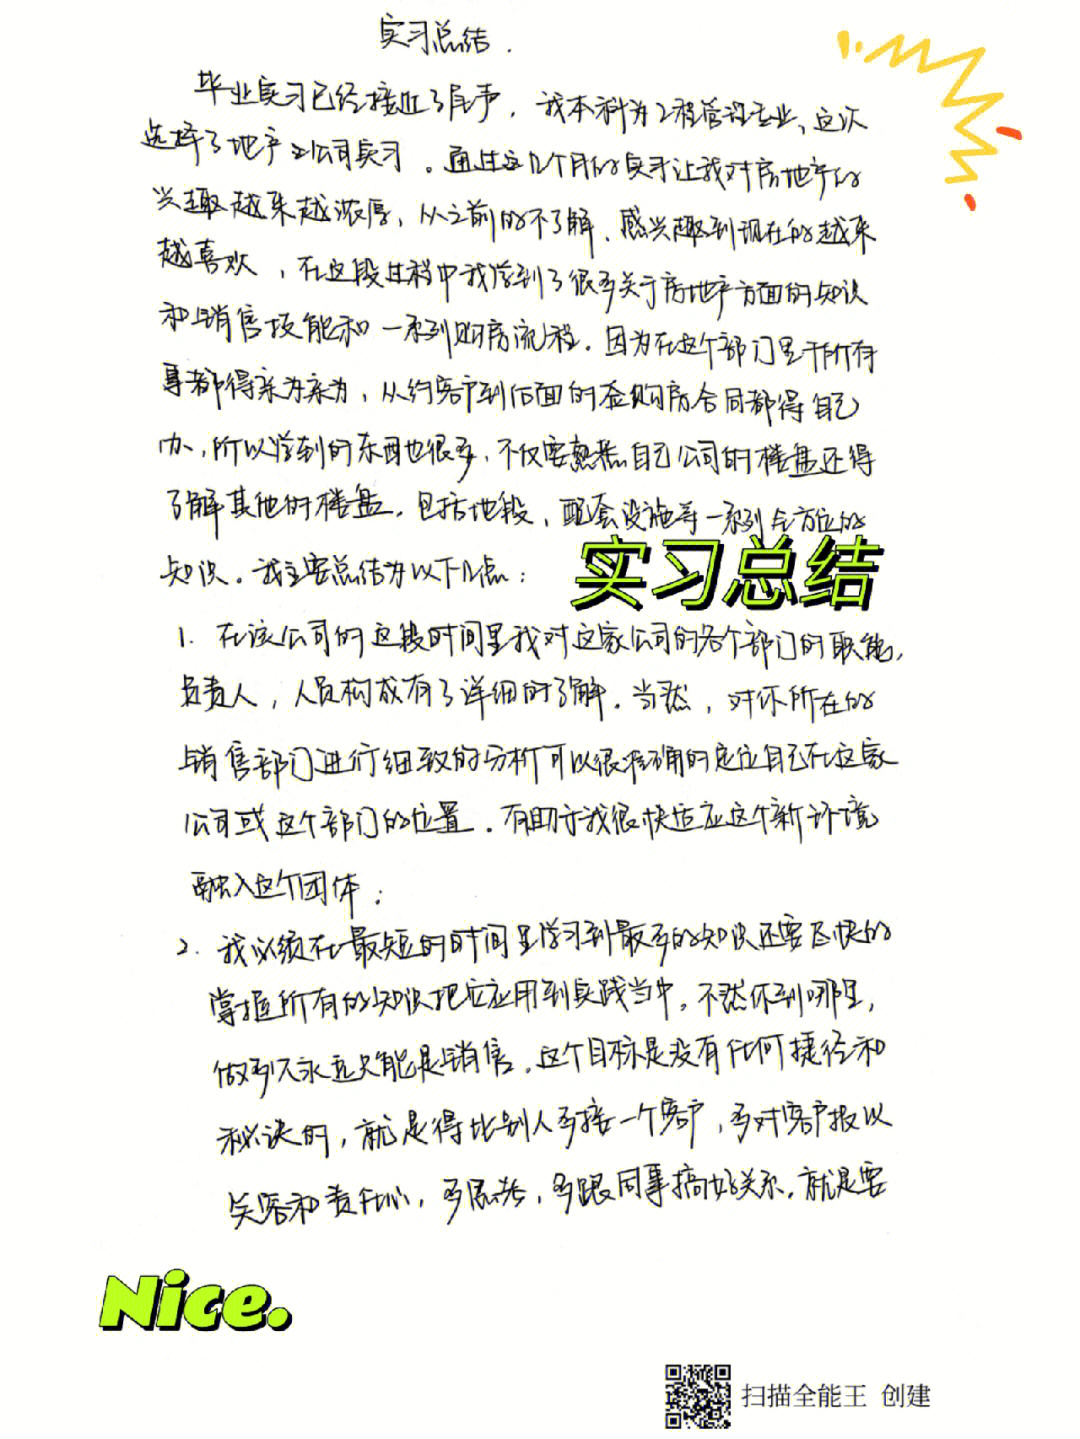 实习总结.
毕业实习已经接近了尾声，我本科为工程管理专业、这次
选择了地产公司实习。通过这几个月的实习让我对房地产的
兴趣越来越浓厚，从之前的不了解、感兴趣到现在的越来
越喜欢，在这段过程中我学到了很多关于房地产方面的知识
和销售技能和一系列购房流程。因为在这个部门里干所有
事都得亲为亲为，从约客户到后面的签购房合同都得自己
办，所以学到的东西也很多，不仅要熟悉自己公司的楼盘还得
了解其他的楼盘。包括地段、配套设施等一系列全方位的
知识。我主要总结为以下几点：
实习总结
1. 在该公司的这段时间里我对这家公司的各个部门的职能，
负责人，人员构成有了详细的了解。当然，对你所在的
销售部门进行细致的分析可以很准确的定位自己在这家
公司或这个部门的位置。有助于我很快适应这个新环境
融入这个团体；
2. 我必须在最短的时间里学习到最多的知识还要飞快的
掌握所有的知识把它应用到实践当中。不然你到哪里，
做多久永远只能是销售。这个目标是没有任何捷径和
秘诀的，就是得比别人多接一个客户，多对客户报以
笑容和责任心，多思考，多跟同事搞好关系。就是要
Nice.
扫描全能王 创建